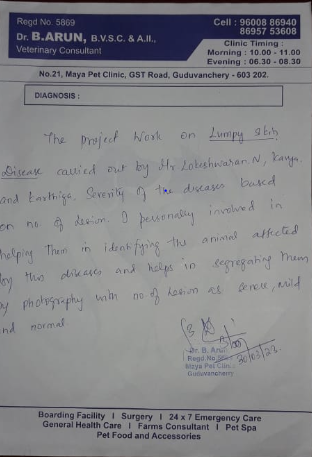 Regd No. 5869
Dr. B.ARUN, B.V.S.C. & A.H.,
Veterinary Consultant
Cell : 96008 86940
86957 53608
Clinic Timing :
Morning : 10.00 - 11.00
Evening : 06.30 - 08.30
No.21, Maya Pet Clinic, GST Road, Guduvanchery - 603 202.
DIAGNOSIS :
The project Work on Lumpy Skin
Disease carried out by Mr Lokeshwaran N, Kavya,
and Karthiga. Severity of the diseases based
on no of lesion. I personally involved in
helping Them in identifying the animal affected
by this diseases and helps in segregating them
by photography with no of lesion as severe, mild
and normal
Dr. B. Arun
Regd.No.
Maya Pet Clinic
Guduvanchery
30/03/23.
Boarding Facility I Surgery I 24 x 7 Emergency Care
General Health Care I Farms Consultant I Pet Spa
Pet Food and Accessories